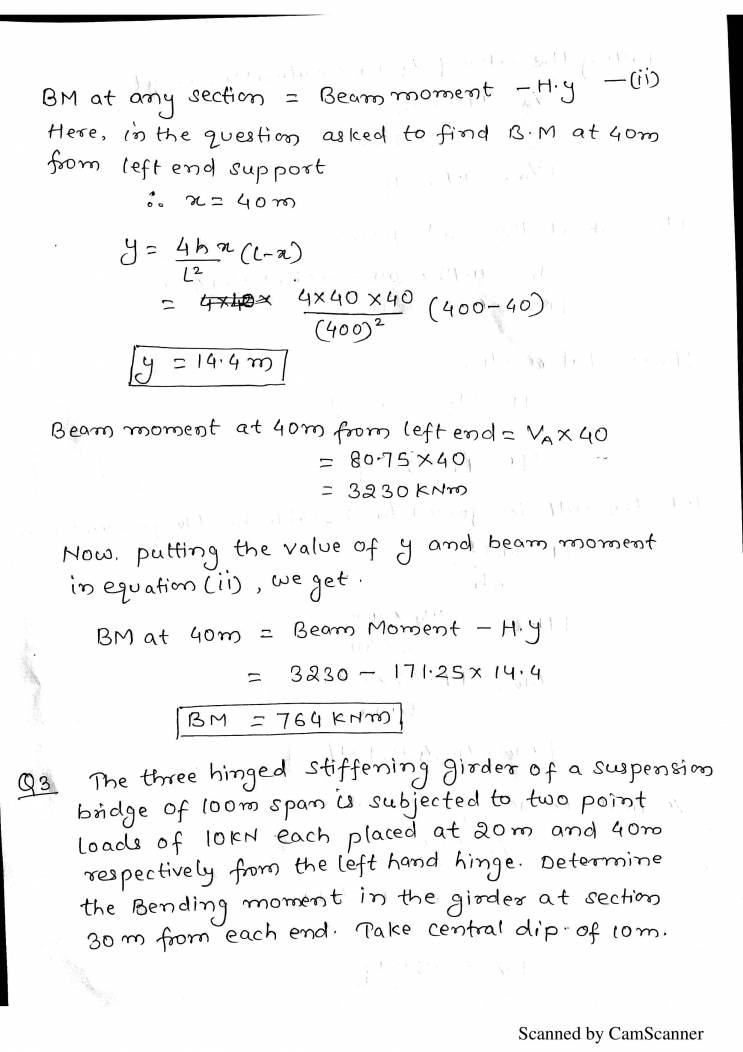 BM at any section = Beam moment - H.y —(ii)
Here, in the question asked to find B.M at 40m
from left end support
∴ x = 40m
y = 4hx/L² (L-x)
= 4×40×40/(400)² (400-40)
y = 14.4 m
Beam moment at 40m from left end = V_A × 40
= 80.75 × 40
= 3230 KNm
Now. putting the value of y and beam moment
in equation (ii), we get.
BM at 40m = Beam Moment - H.y
= 3230 - 171.25 × 14.4
BM = 764 KNm
Q3 The three hinged stiffening girder of a suspension
bridge of 100m span is subjected to two point
loads of 10KN each placed at 20m and 40m
respectively from the left hand hinge. Determine
the Bending moment in the girder at section
30m from each end. Take central dip of 10m.
Scanned by CamScanner